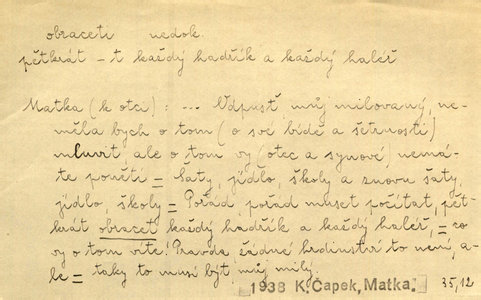 obraceti nedok.
pětkrát – t každý hadřík a každý haléř
Matka (k otci): ... Odpusť můj milovaný, ne-
měla bych o tom (o své bídě a šetrnosti)
mluvit, ale o tom vy (otec a synové) nemá-
te ponětí = šaty, jídlo, školy a znovu šaty,
jídlo, školy = Pořád, pořád muset počítat, pět-
krát obracet každý hadřík a každý haléř, = co
vy o tom víte! Pravda, žádné hrdinství to není, a-
le = taky to musí být můj milý.
1938 K. Čapek, Matka. 35,12